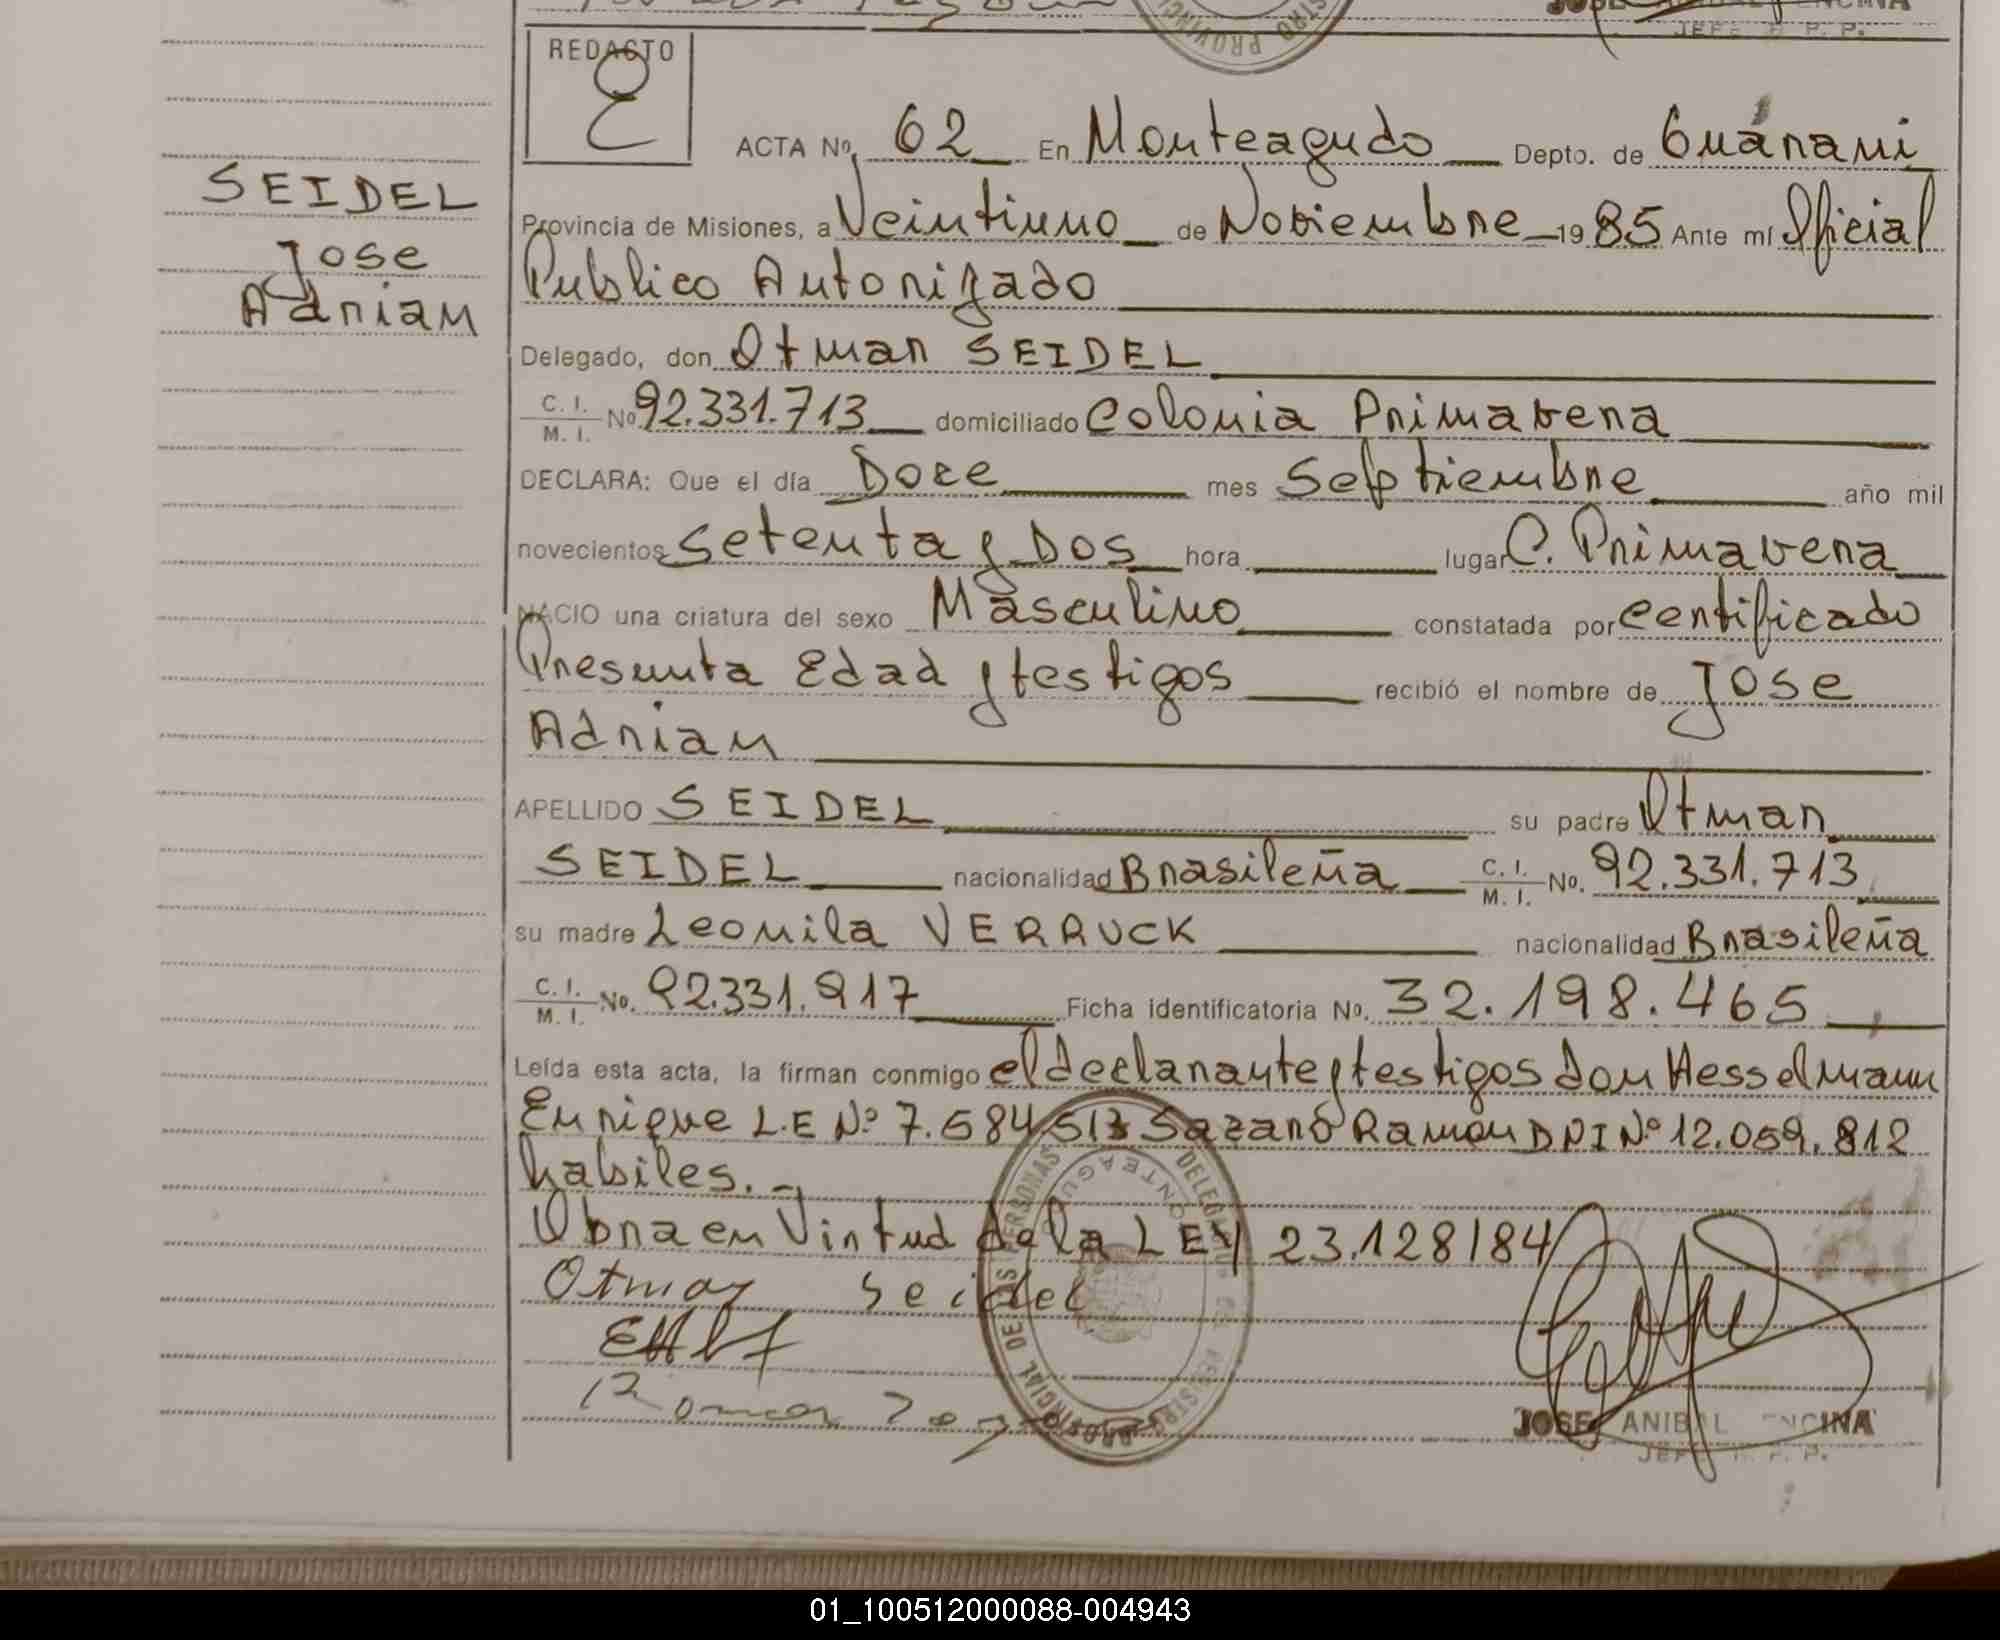 REDACTO
ACTA No. 62 En Monteagudo Depto. de Guarani
SEIDEL
Jose
Adrian
Provincia de Misiones, a Veintiuno de Noviembre 1985 Ante mí Oficial
Publico Autorizado
Delegado, don Otmar SEIDEL
C. I. M. I. No. 92.331.713 domiciliado Colonia Primavera
DECLARA: Que el día Doce mes Septiembre año mil
novecientos Setenta y Dos hora lugar C. Primavera
NACIO una criatura del sexo Masculino constatada por certificado
Presunta Edad y testigos recibió el nombre de Jose
Adrian
APELLIDO SEIDEL su padre Otmar
SEIDEL nacionalidad Brasileña C. I. M. I. No. 92.331.713
su madre Leonila VERRUCK nacionalidad Brasileña
C. I. M. I. No. 92.331.917 Ficha identificatoria No. 32.198.465
Leída esta acta, la firman conmigo el declarante y testigos don Hesselmann
Enrique L.E Nº 7.584.513 Ramon DNI Nº 12.059.812
habiles.-
Obra en Virtud de la LEY 23.128/84
Otmar Seidel
JOSE ANIBAL ENCINA
01_100512000088-004943